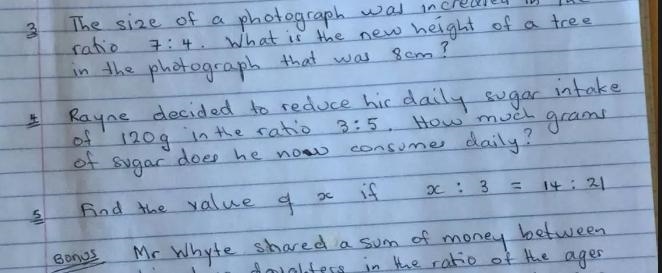 3 The size of a photograph was increased in the
ratio 7:4. What is the new height of a tree
in the photograph that was 8cm?
4 Rayne decided to reduce his daily sugar intake
of 120g in the ratio 3:5. How much grams
of sugar does he now consumes daily?
5 Find the value of x if x : 3 = 14 : 21
Bonus Mr Whyte shared a sum of money between
daughters in the ratio of the ages